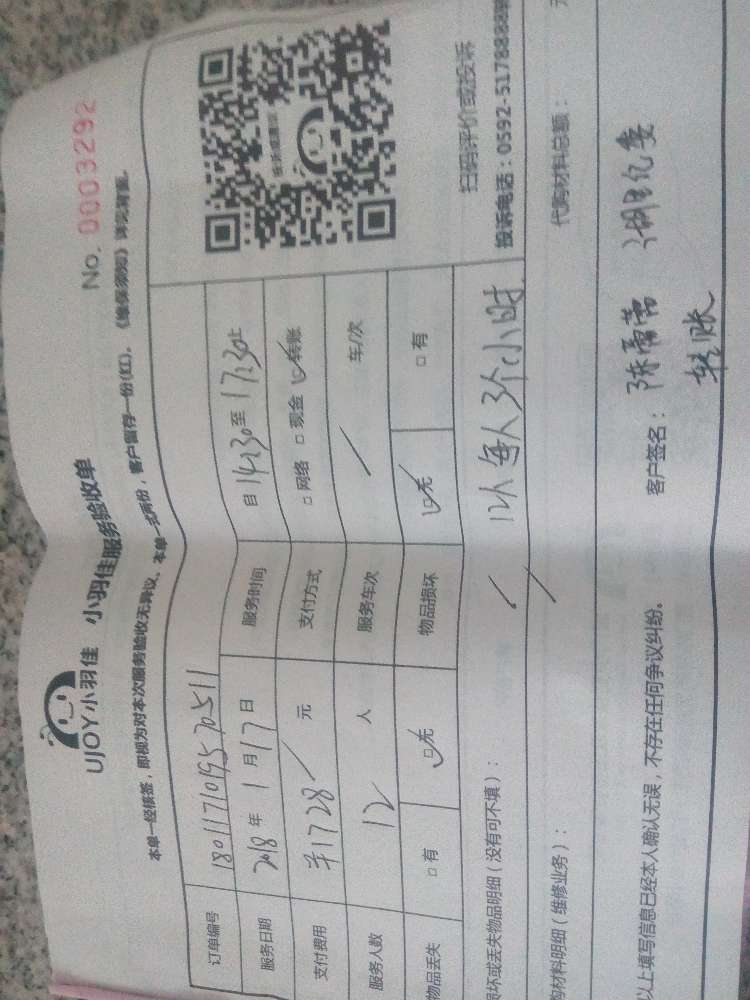 UJOY小羽佳 小羽佳服务验收单
No. 0003292
本单一经核签，即视为对本次服务验收无异议。本单一式两份，客户留存一份(红)。《维保须知》详见背面。
订单编号 1801171019570511
服务日期 2018年1月17日 服务时间 自14:30至17:30止
支付费用 ¥1728 元 支付方式 □网络 □现金 ☑转账
服务人数 12 人 服务车次 / 车/次
物品丢失 □有 ☑无 物品损坏 ☑无 □有
扫码评价或投诉
损坏或丢失物品明细（没有可不填）： 12人每人3个小时
投诉电话：0592-5178888
购材料明细（维修业务）：
代购材料总额： 元
以上填写信息已经本人确认无误，不存在任何争议纠纷。 客户签名： 湖里纪委
转账